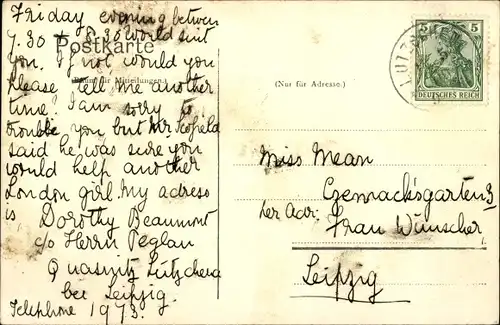 Friday evening betwen
7.30 + 8.30 World suit
Postkarte
you. If not would you
(Raum für Mitteilungen.)
please tell me another
time. I am sorry to
trouble you but Mr Scofield
said he was sure you
would help another
London girl. My adress
is, Dorothy Beaumont
c/o Herrn Peglau
Quasnitz Lützschena
bei Leipzig.
Telephone 1973.
(Nur für Adresse.)
5 5
DEUTSCHES REICH
LÜTZSCHENA
Miss Mean
Czermacksgarten 3
per Adr: Frau Wünscher
Leipzig